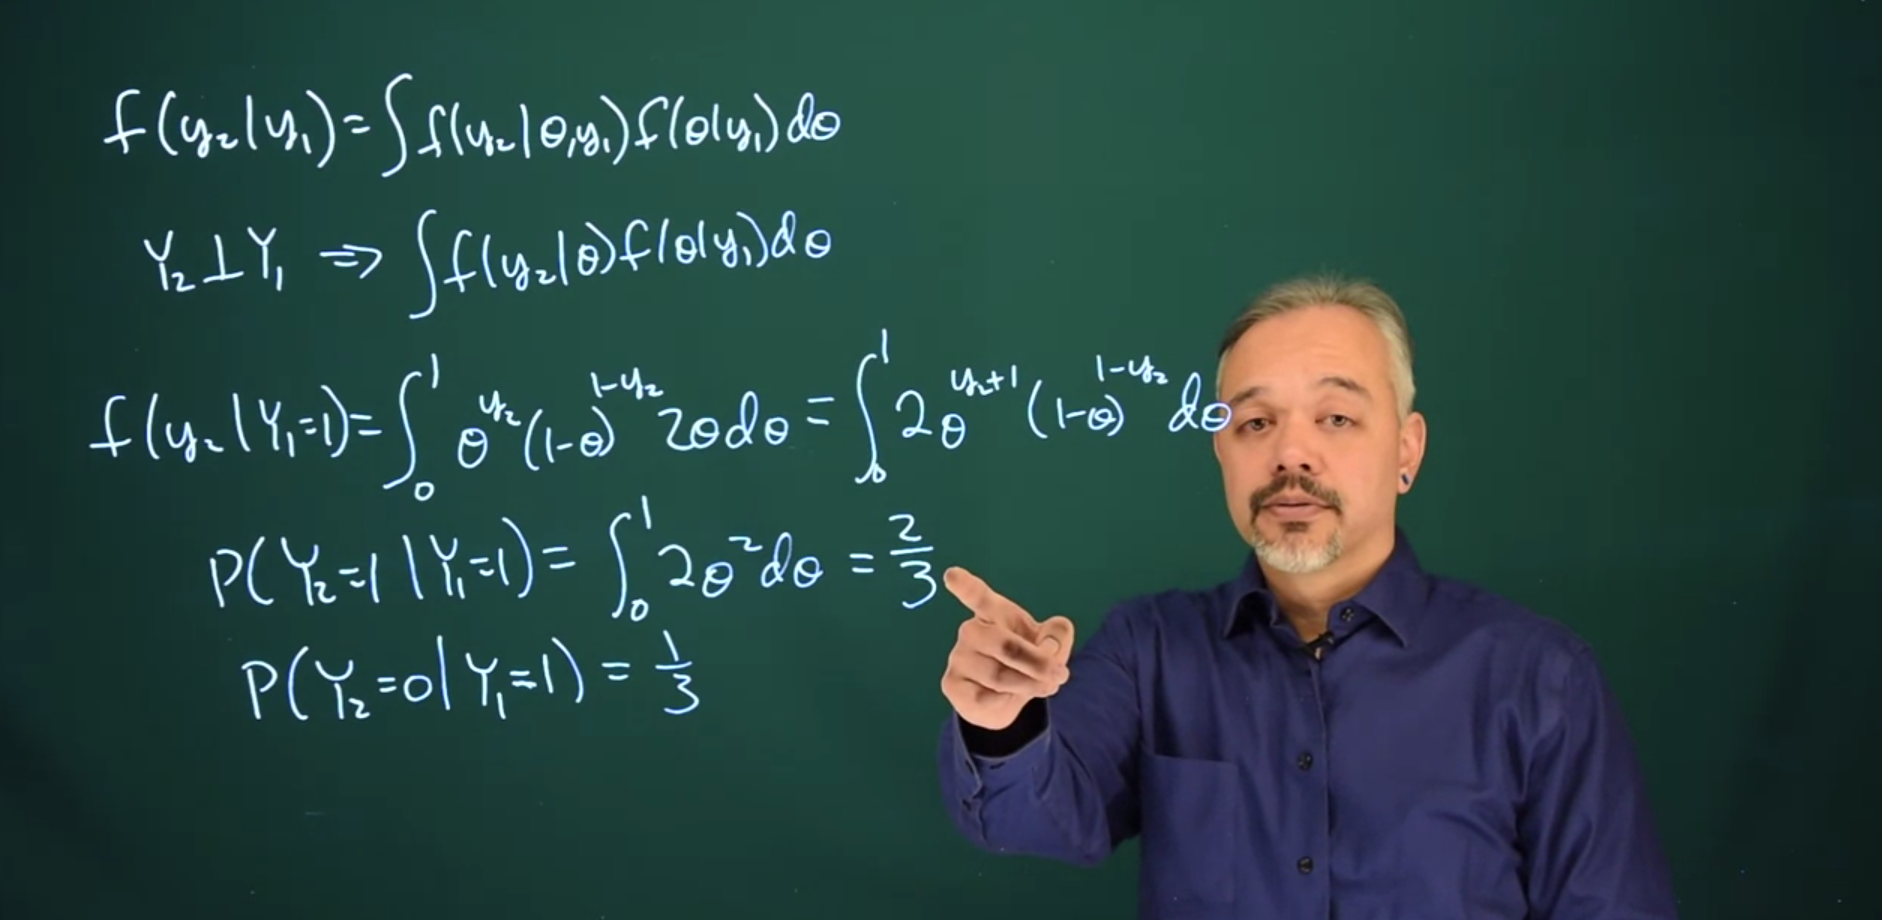 f(y₂|y₁) = ∫ f(y₂|θ,y₁) f(θ|y₁) dθ
Y₂ ⊥ Y₁ ⇒ ∫ f(y₂|θ) f(θ|y₁) dθ
f(y₂|Y₁=1) = ∫₀¹ θ^{y₂} (1-θ)^{1-y₂} 2θ dθ = ∫₀¹ 2θ^{y₂+1} (1-θ)^{1-y₂} dθ
P(Y₂=1|Y₁=1) = ∫₀¹ 2θ² dθ = 2/3
P(Y₂=0|Y₁=1) = 1/3